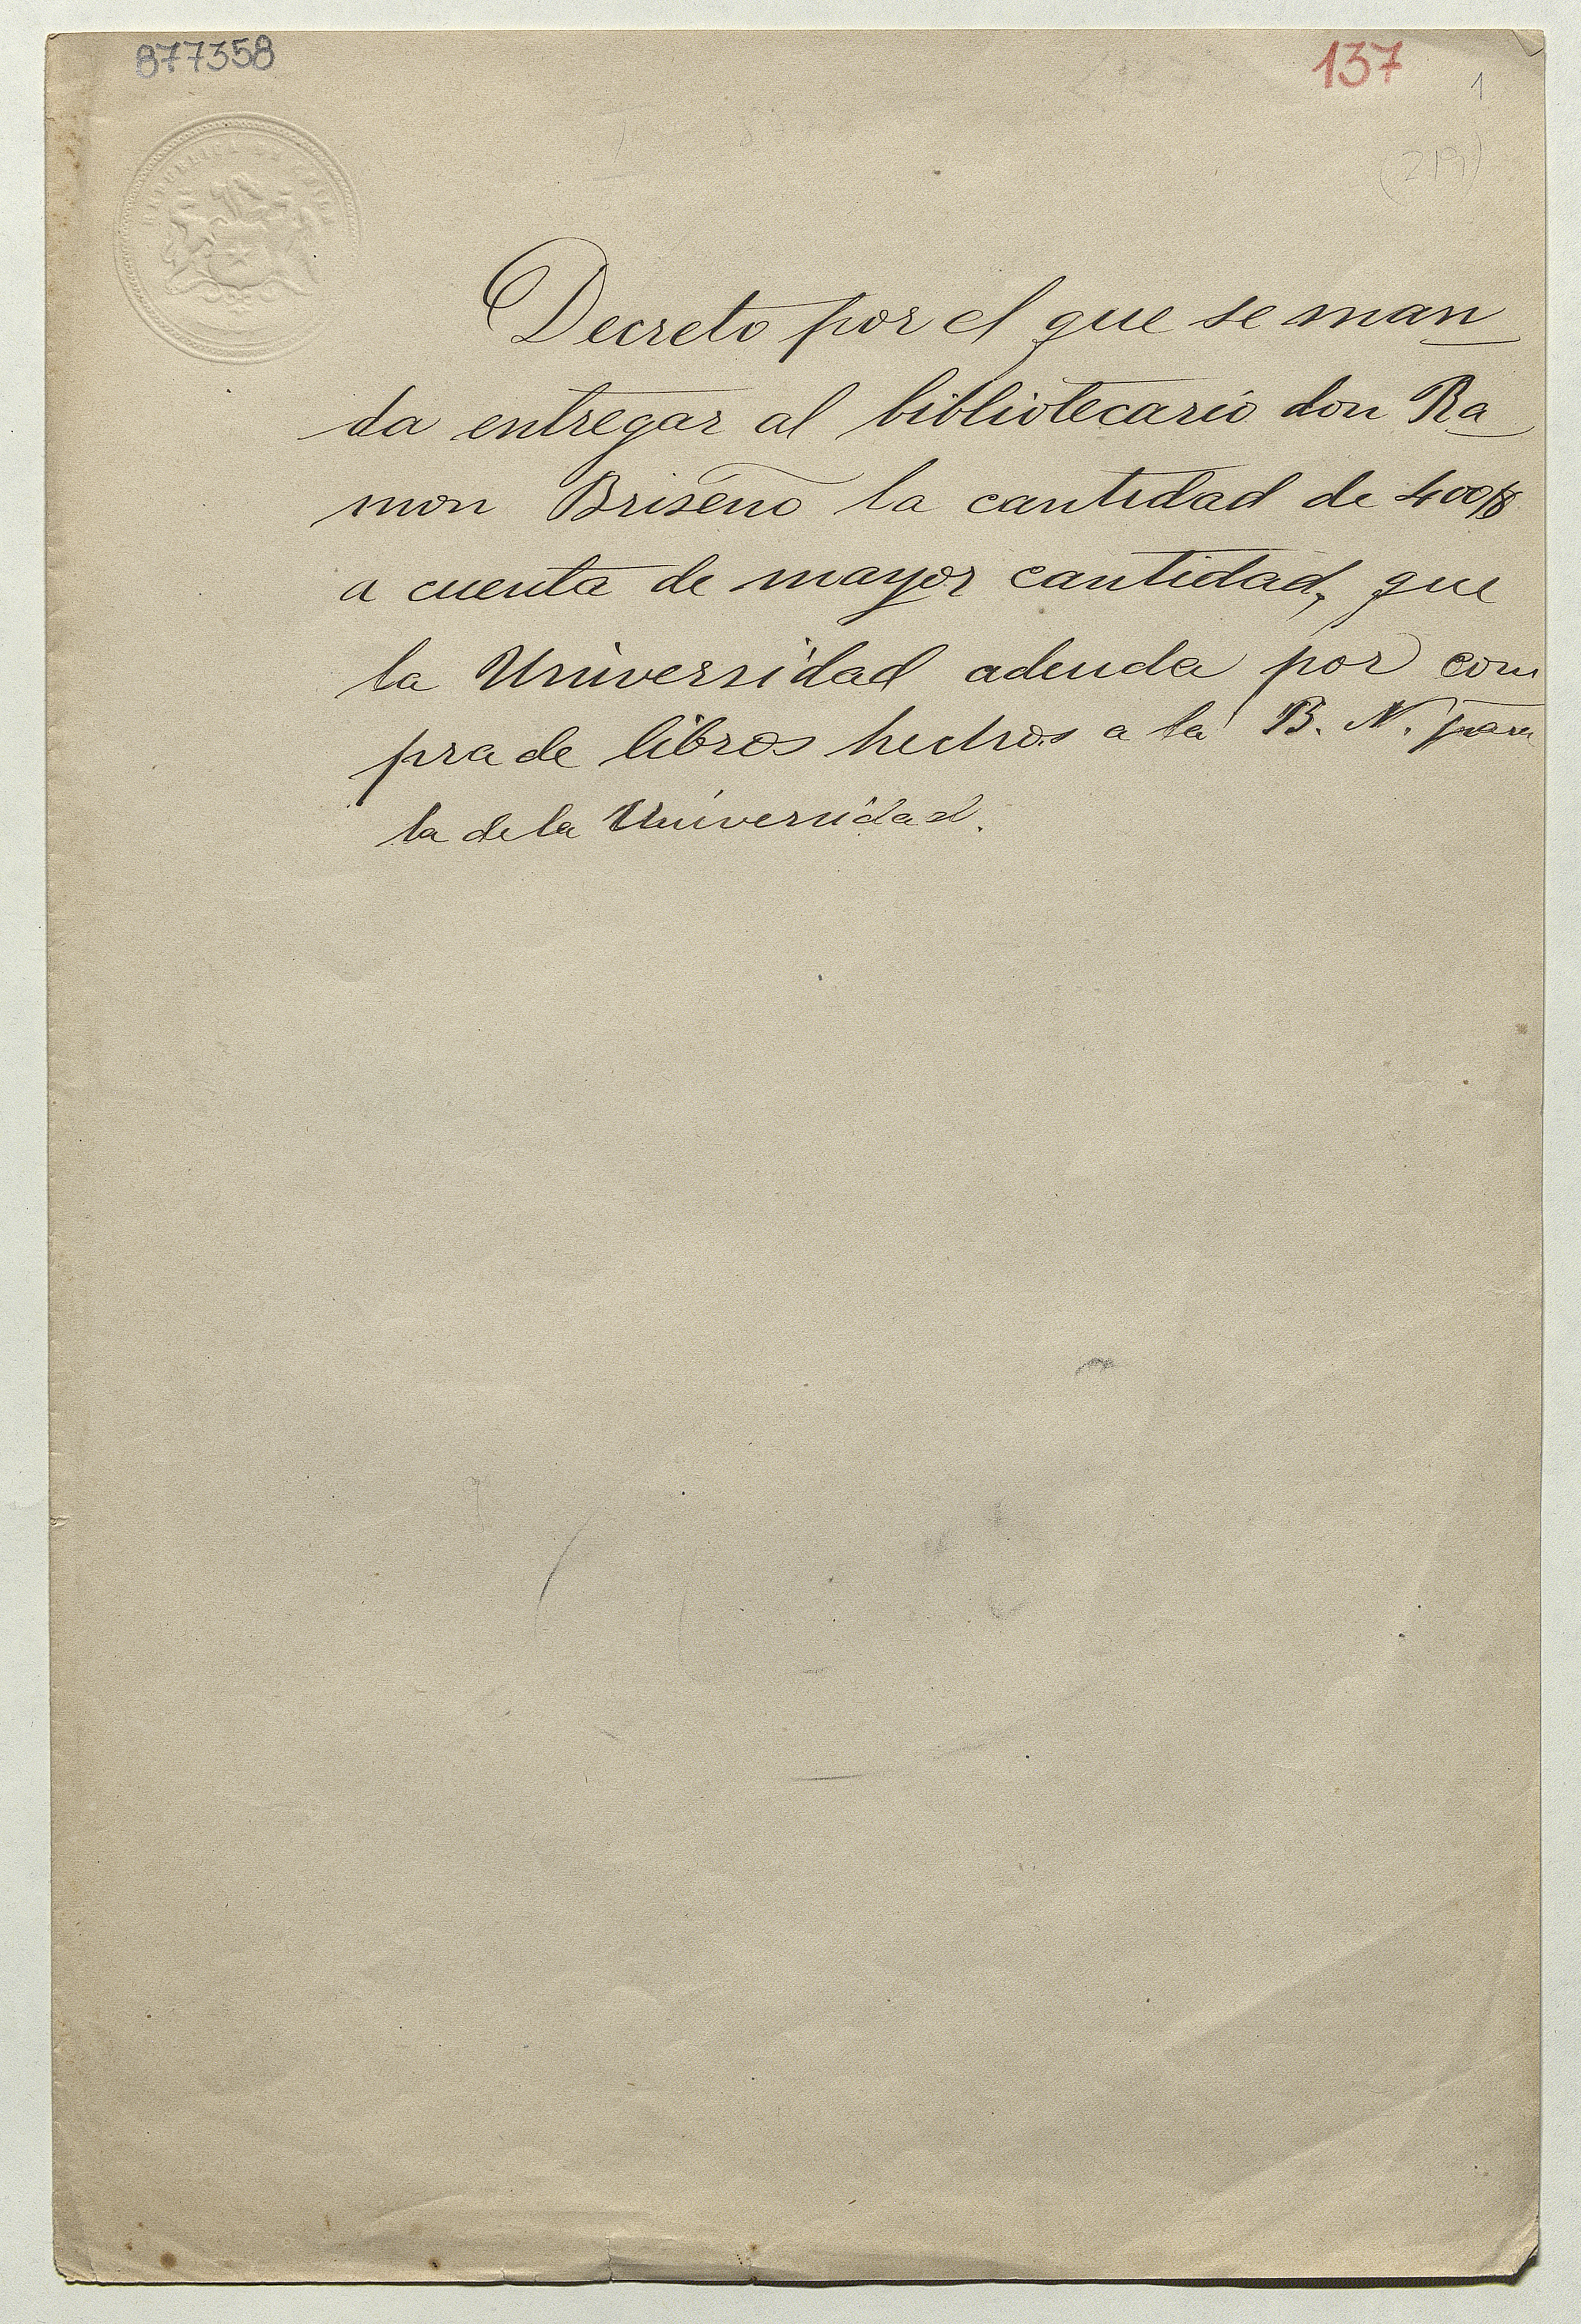 877358
137
1
(219)
REPUBLICA DE CHILE
Decreto por el que se man
da entregar al bibliotecario don Ra
mon Briseño la cantidad de 400$
a cuenta de mayor cantidad, que
la Universidad adeuda por com
pra de libros hechos a la B. N. para
la de la Universidad.